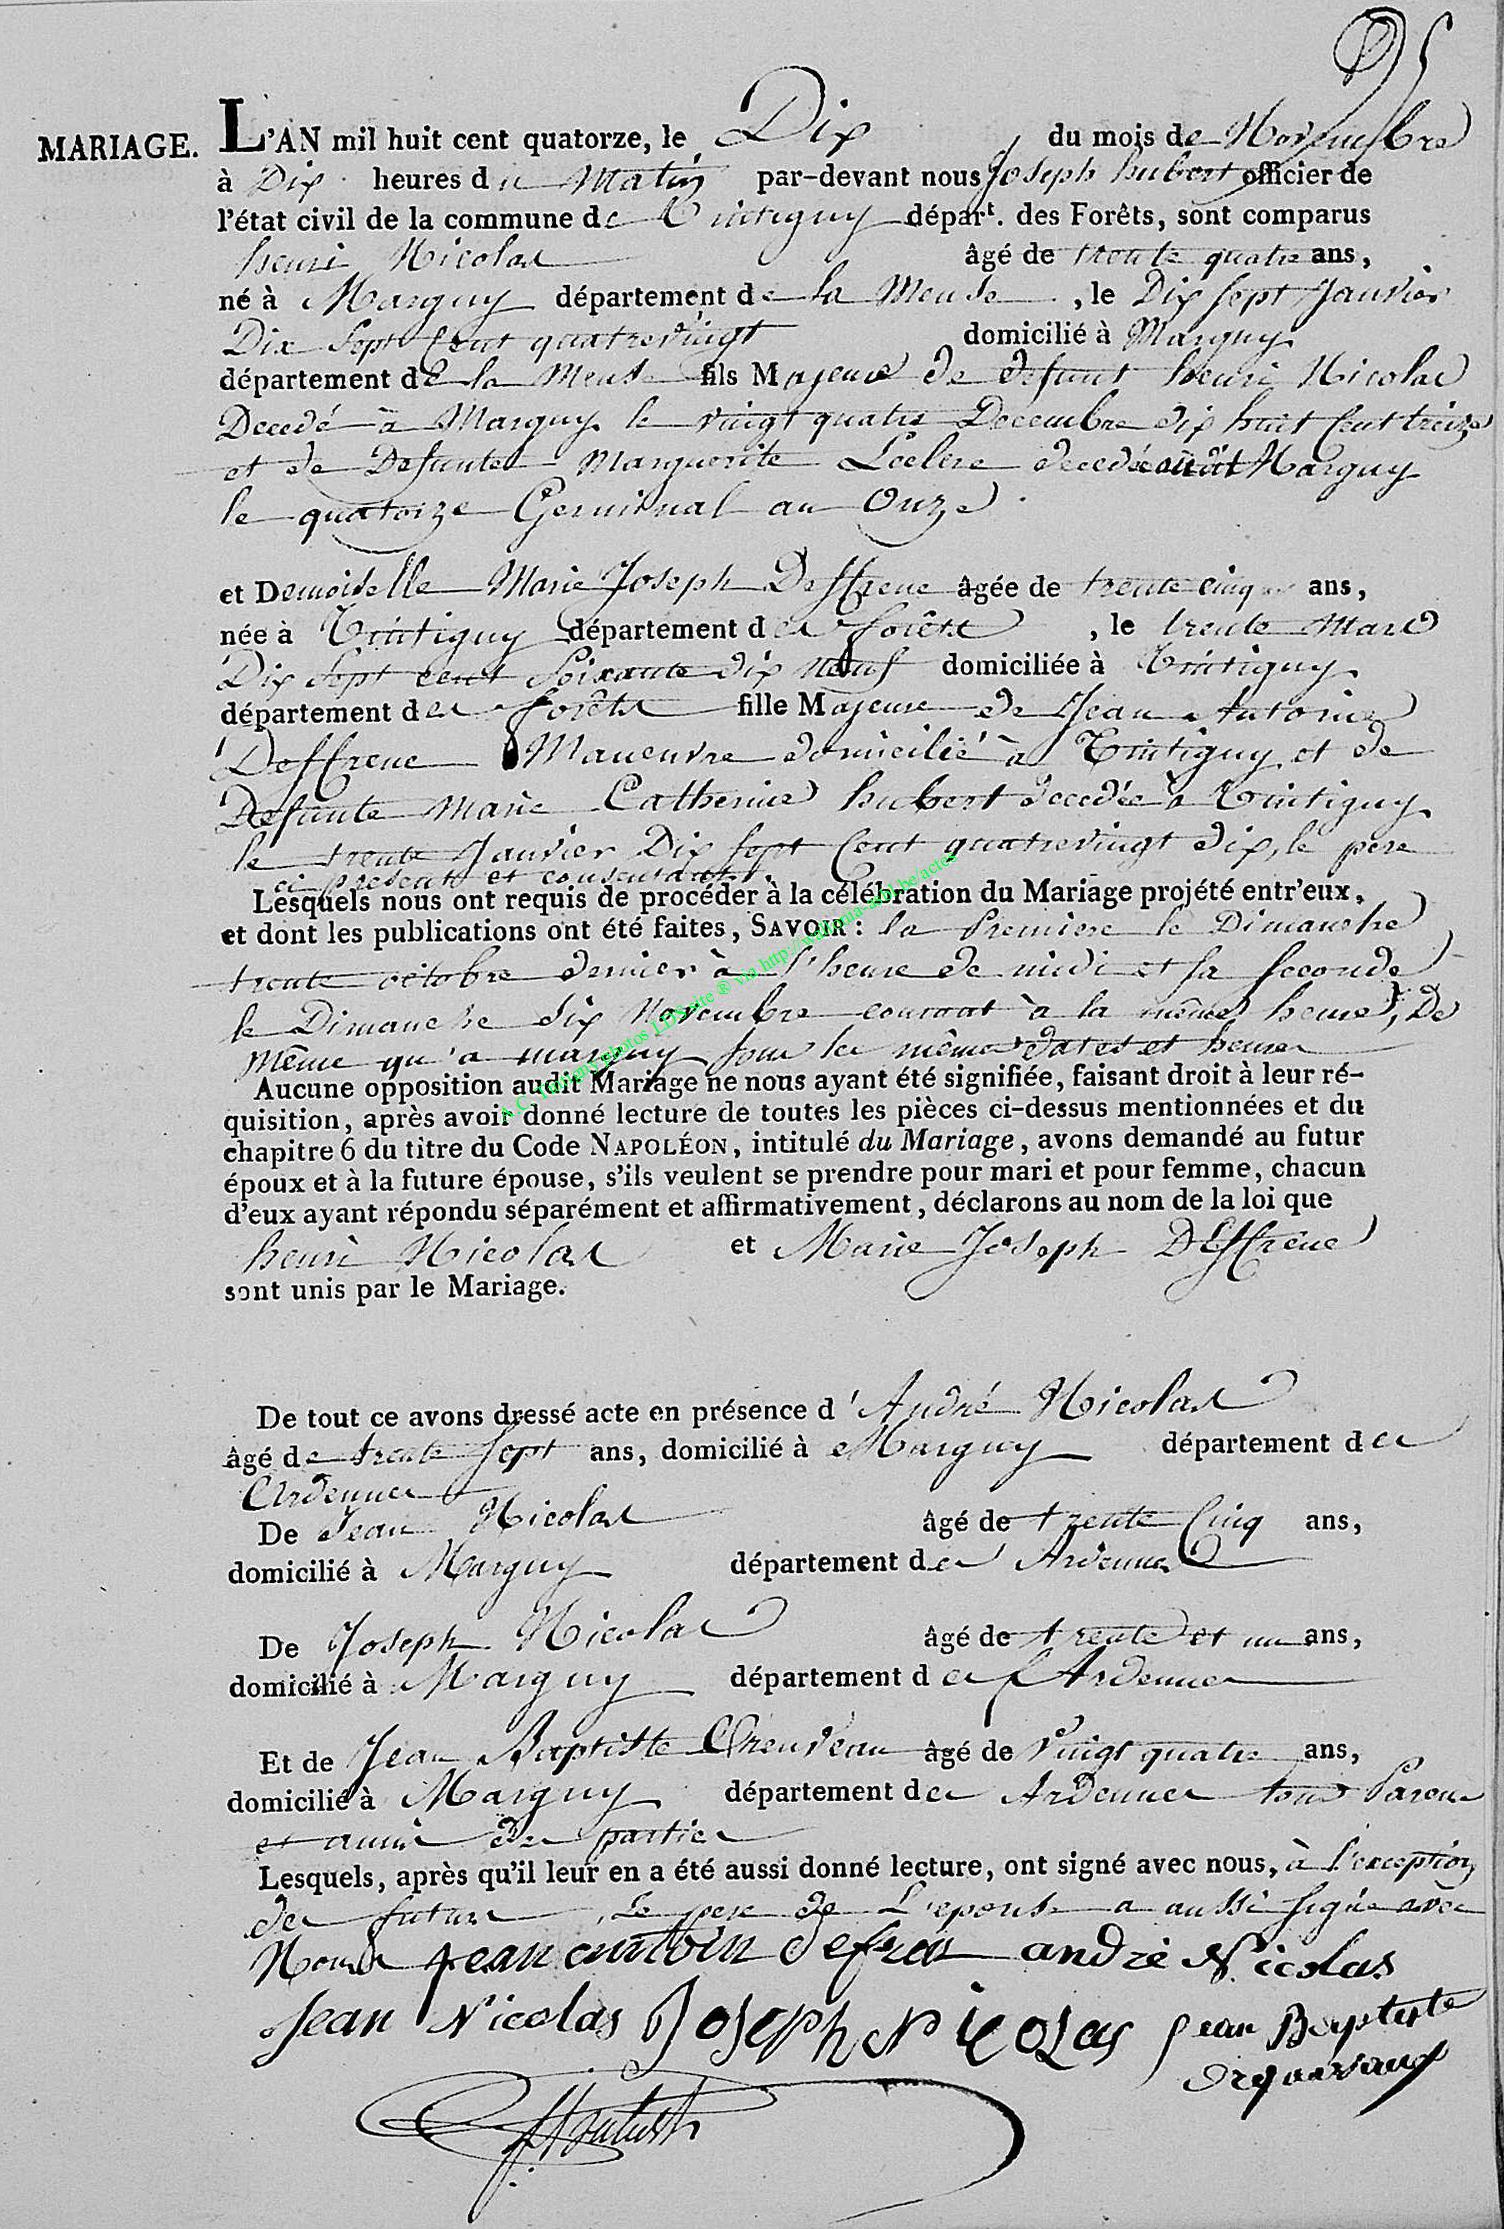 25
MARIAGE. L'AN mil huit cent quatorze, le Dix du mois de Novembre
à Dix heures du Matin par-devant nous Joseph hubert officier de
l'état civil de la commune de Tintigny départ. des Forêts, sont comparus
henri Nicolas âgé de trente quatre ans,
né à Marguy département de la Meuse, le Dix sept Janvier
Dix Sept Cent quatrevingt domicilié à Marguy
département de la Meuse fils Majeur de defunt henri Nicolas
Decedé à Marguy le vingt quatre Decembre dix huit Cent treize
et de Defunte Marguerite Leclere decedée audit Marguy
le quatorze Germinal an Onze
et Demoiselle Marie Joseph Deffrene âgée de trente cinq ans,
née à Tintigny département des forêts, le trente Mars
Dix Sept cent Soixante dix neuf domiciliée à Tintigny
département des forêts fille Majeure de Jean Antoine
Deffrene Maneuvre domicilié à Tintigny et de
Defunte Marie Catherine hubert decedée à Tintigny
le trente Janvier Dix sept Cent quatrevingt dix, le pere
ci present et consentant.
Lesquels nous ont requis de procéder à la célébration du Mariage projété entr'eux,
et dont les publications ont été faites, SAVOIR : la Premiere le Dimanche
trente octobre dernier à l'heure de midi et la seconde
le Dimanche six Novembre courant à la même heure, De
même qu'a marguy sous les mêmes dates et heures
Aucune opposition audit Mariage ne nous ayant été signifiée, faisant droit à leur ré-
quisition, après avoir donné lecture de toutes les pièces ci-dessus mentionnées et du
chapitre 6 du titre du Code NAPOLÉON, intitulé du Mariage, avons demandé au futur
époux et à la future épouse, s'ils veulent se prendre pour mari et pour femme, chacun
d'eux ayant répondu séparément et affirmativement, déclarons au nom de la loi que
henri Nicolas et Marie Joseph Deffrene
sont unis par le Mariage.
De tout ce avons dressé acte en présence d'André Nicolas
âgé de trente Sept ans, domicilié à Marguy département des
Ardennes
De Jean Nicolas âgé de trente Cinq ans,
domicilié à Marguy département des Ardennes
De Joseph Nicolas âgé de trente et un ans,
domicilié à Marguy département des Ardennes
Et de Jean Baptiste âgé de Vingt quatre ans,
domicilié à Marguy département des Ardennes tous Parens
et amis des parties
Lesquels, après qu'il leur en a été aussi donné lecture, ont signé avec nous, à l'exception
des futurs, Le pere de L'epouse a aussi signé avec
Nous Jean antoin defren andré Nicolas
Jean Nicolas Joseph Nicolas Jean Baptiste
A.C. Tintigny photos LDS site ® via http://wallonia-asbl.be/actes